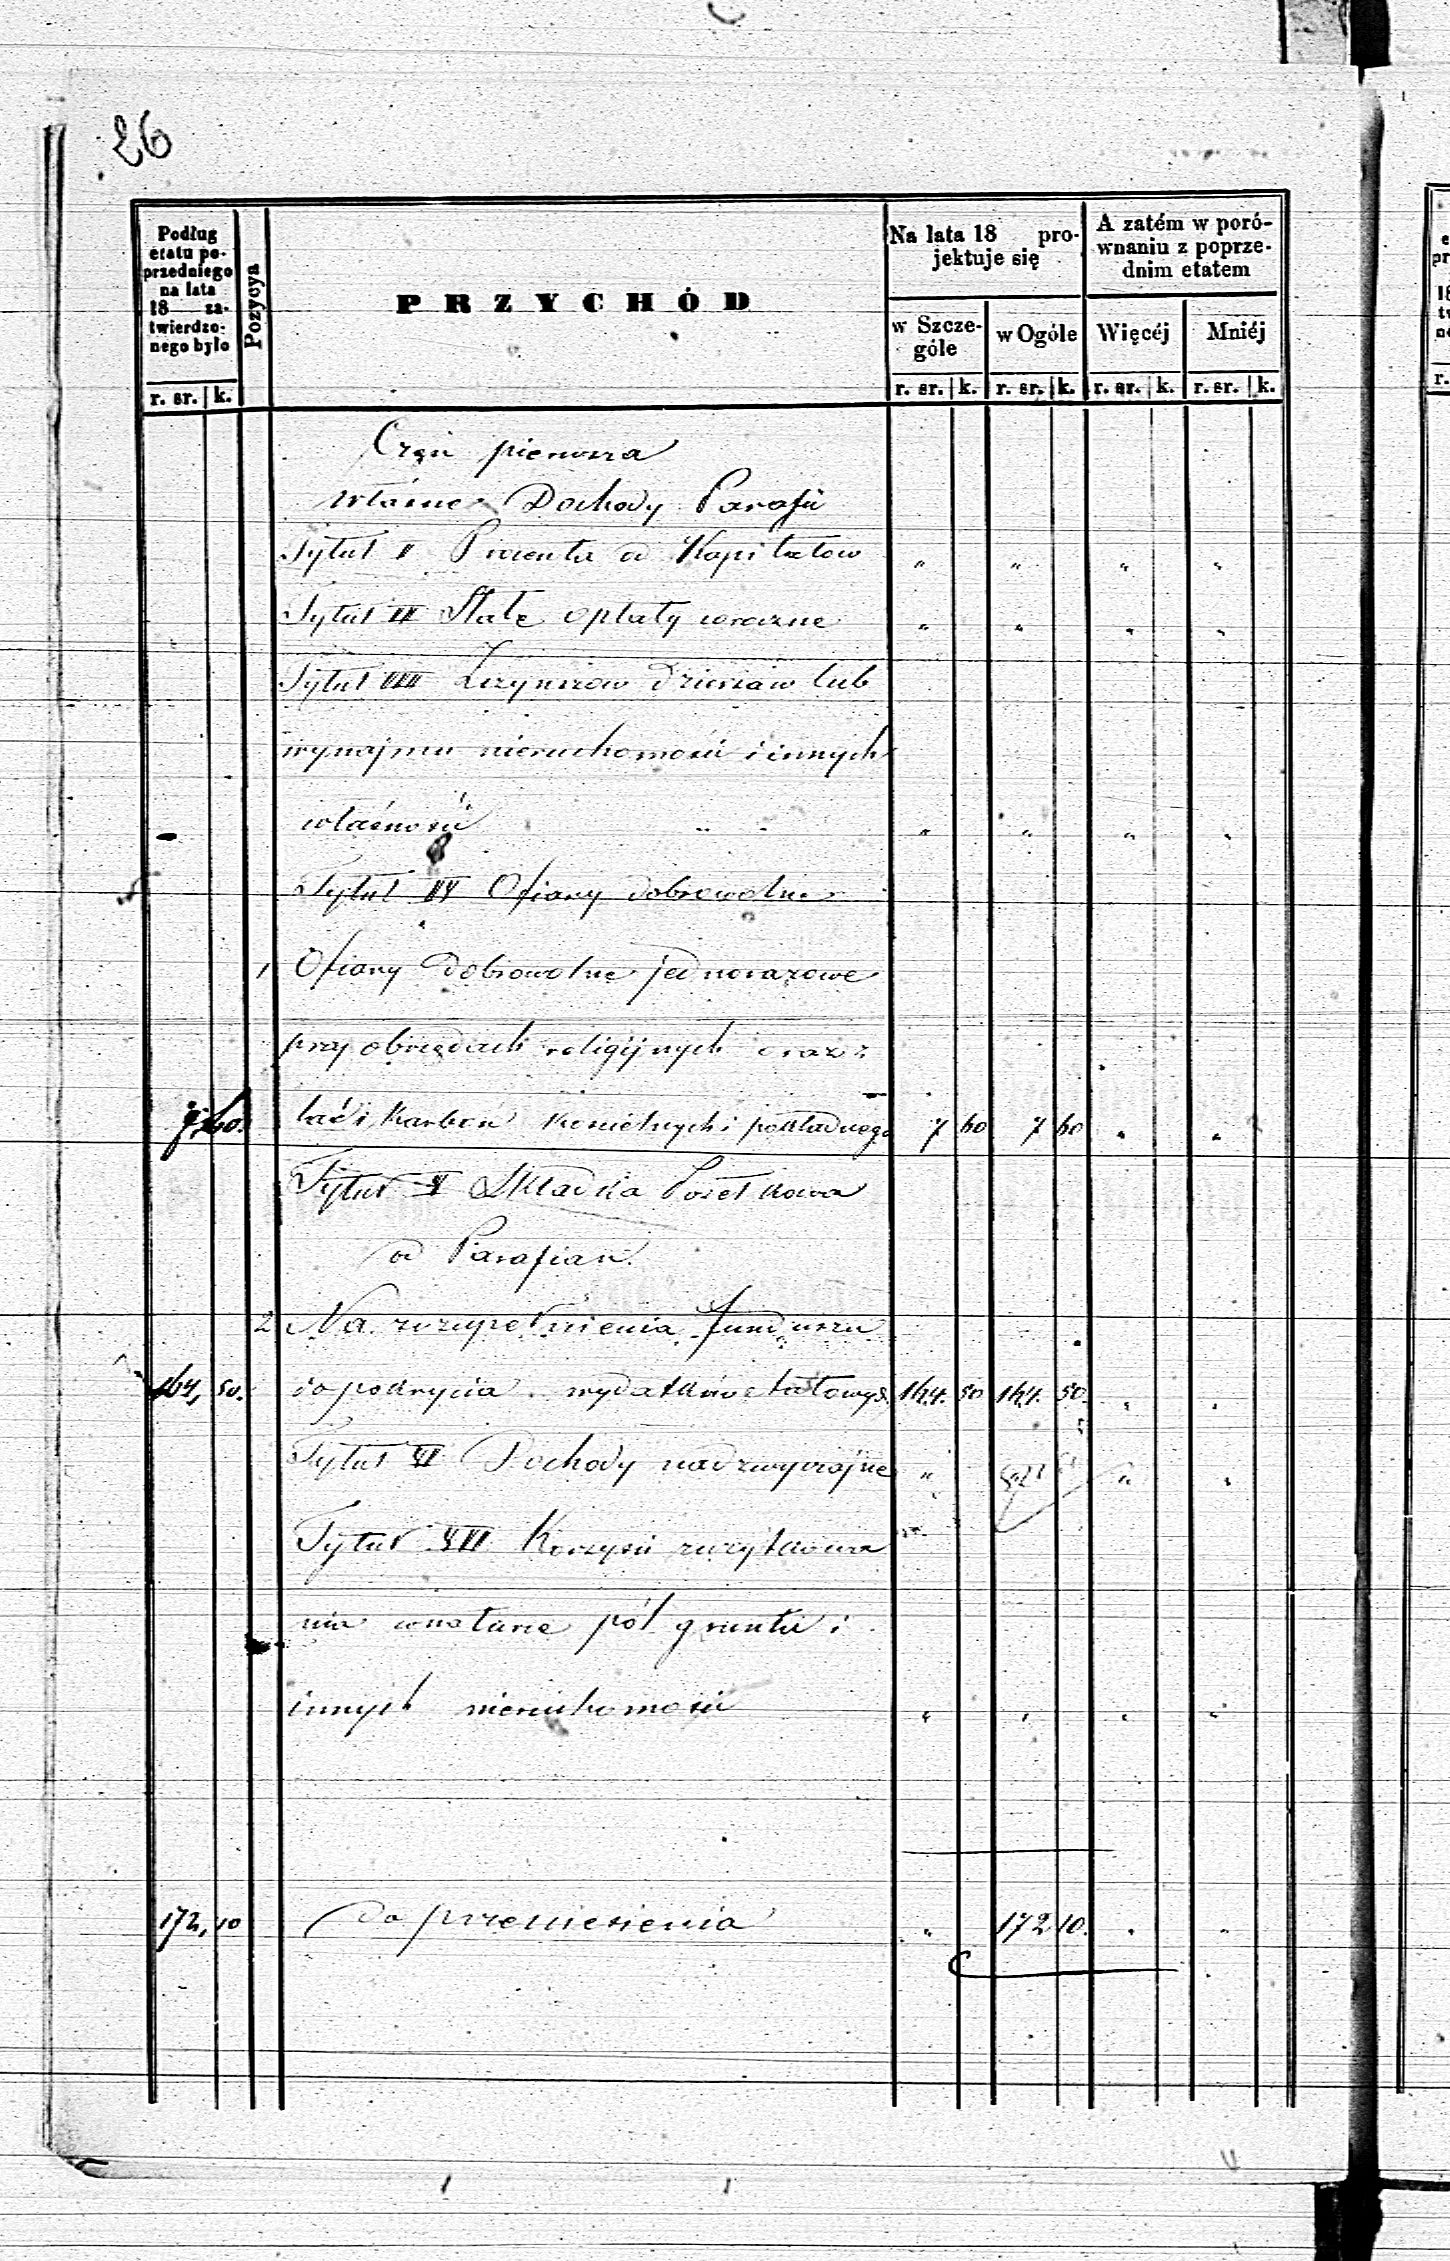 26
Podług etatu poprzedniego na lata 18 zatwierdzonego było
Pozycya
PRZYCHÓD
Na lata 18 projektuje się
A zatém w porównaniu z poprzednim etatem
w Szczególe
w Ogóle
Więcéj
Mniéj
r. sr. k. r. sr. k. r. sr. k. r. sr. k. r. sr. k.
Częś pierwsza
Własne Dochody Parafii
Tytuł I Procenta od Kapitałow " " " "
Tytuł II Stałe opłaty wieczne " " " "
Tytuł III Z czynszow dzierżaw lub
wynajmu nieruchomości i innych
własności " " " "
Tytuł IV Ofiary dobrowolne
1 Ofiary dobrowolne jednorazowe
przy obrzędach religijnych oraz z
7 60. tać i Karbon kościelnych i pokładnego 7 60 7 60 " "
Tytuł V Składka Posełkowa
od Parafian.
2 Na zuzupełnienia funduszu
164, 50. do pokrycia wydatków etatowych 164. 50 164. 50. " "
Tytuł VI Dochody nadzwyczajne " " "
Tytuł VII Korzyści zużytkowa
nia wnaturze pól gruntu i
innych nieruchomości " " " "
172, 10 do przeniesienia " 172 10. " "